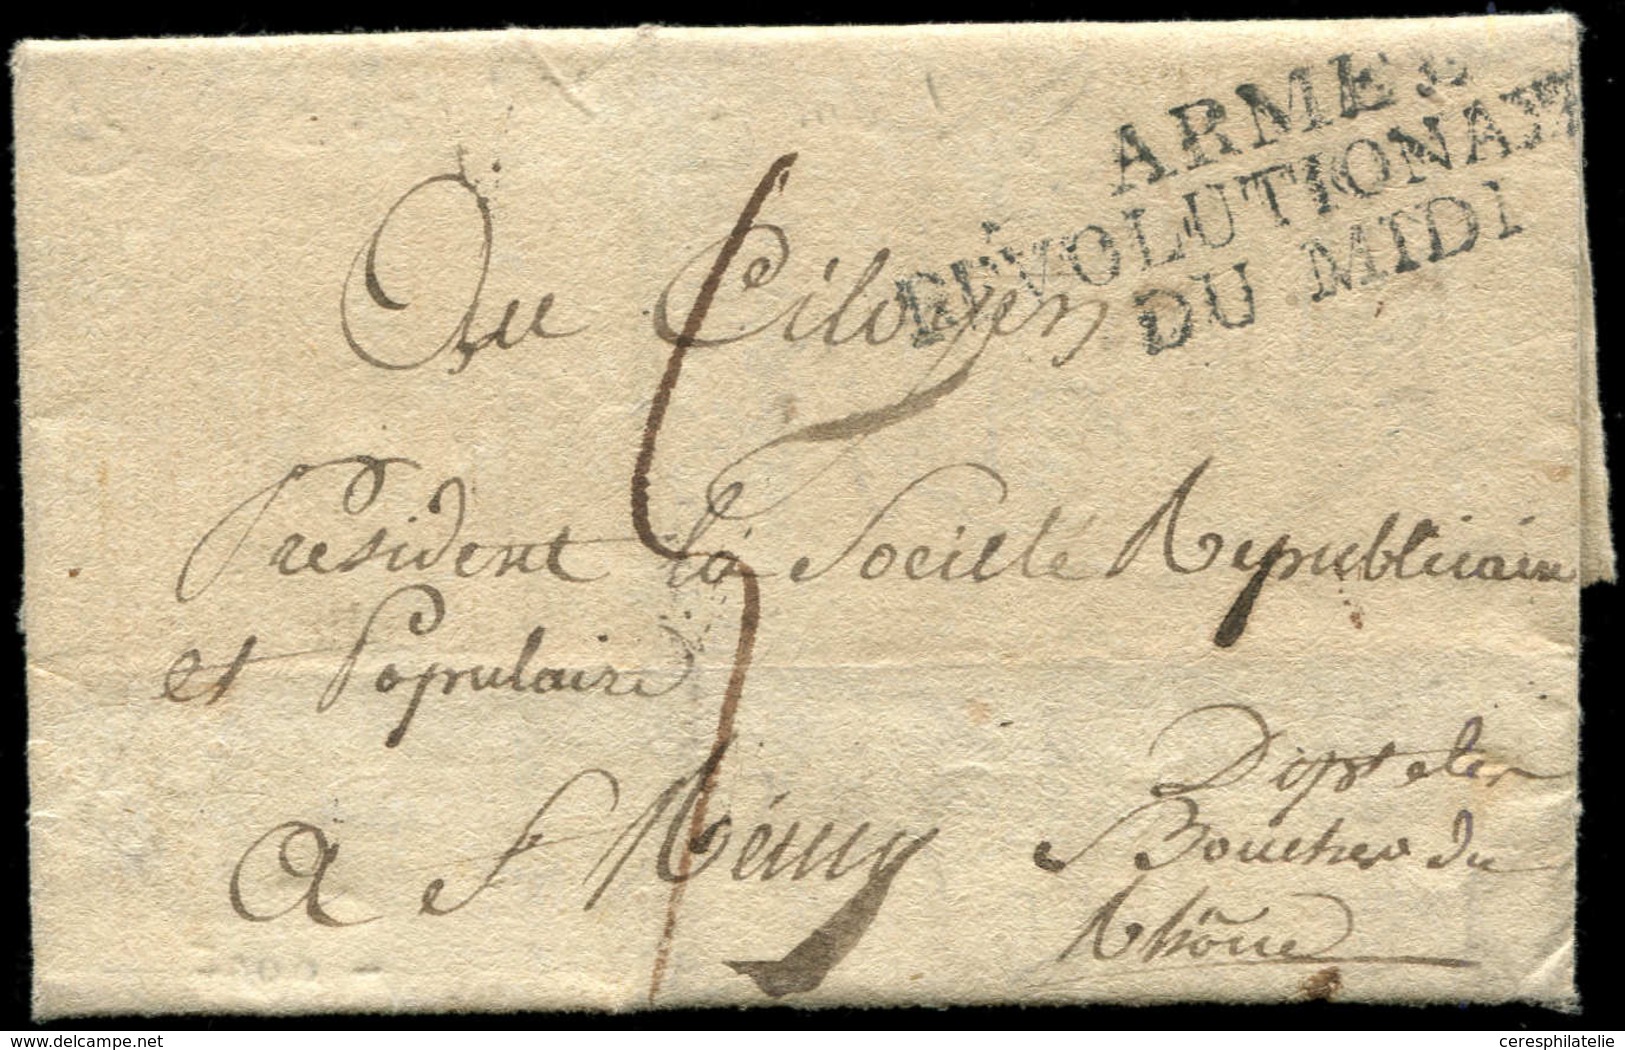 ARMÉE
RÉVOLUTIONAI
DU MIDI
Au Citoyen
President la Societé Republicaine
et Populaire
A St Rémy
Dept des
Bouches du
Rhône
www.delcampe.net
ceresphilatelie